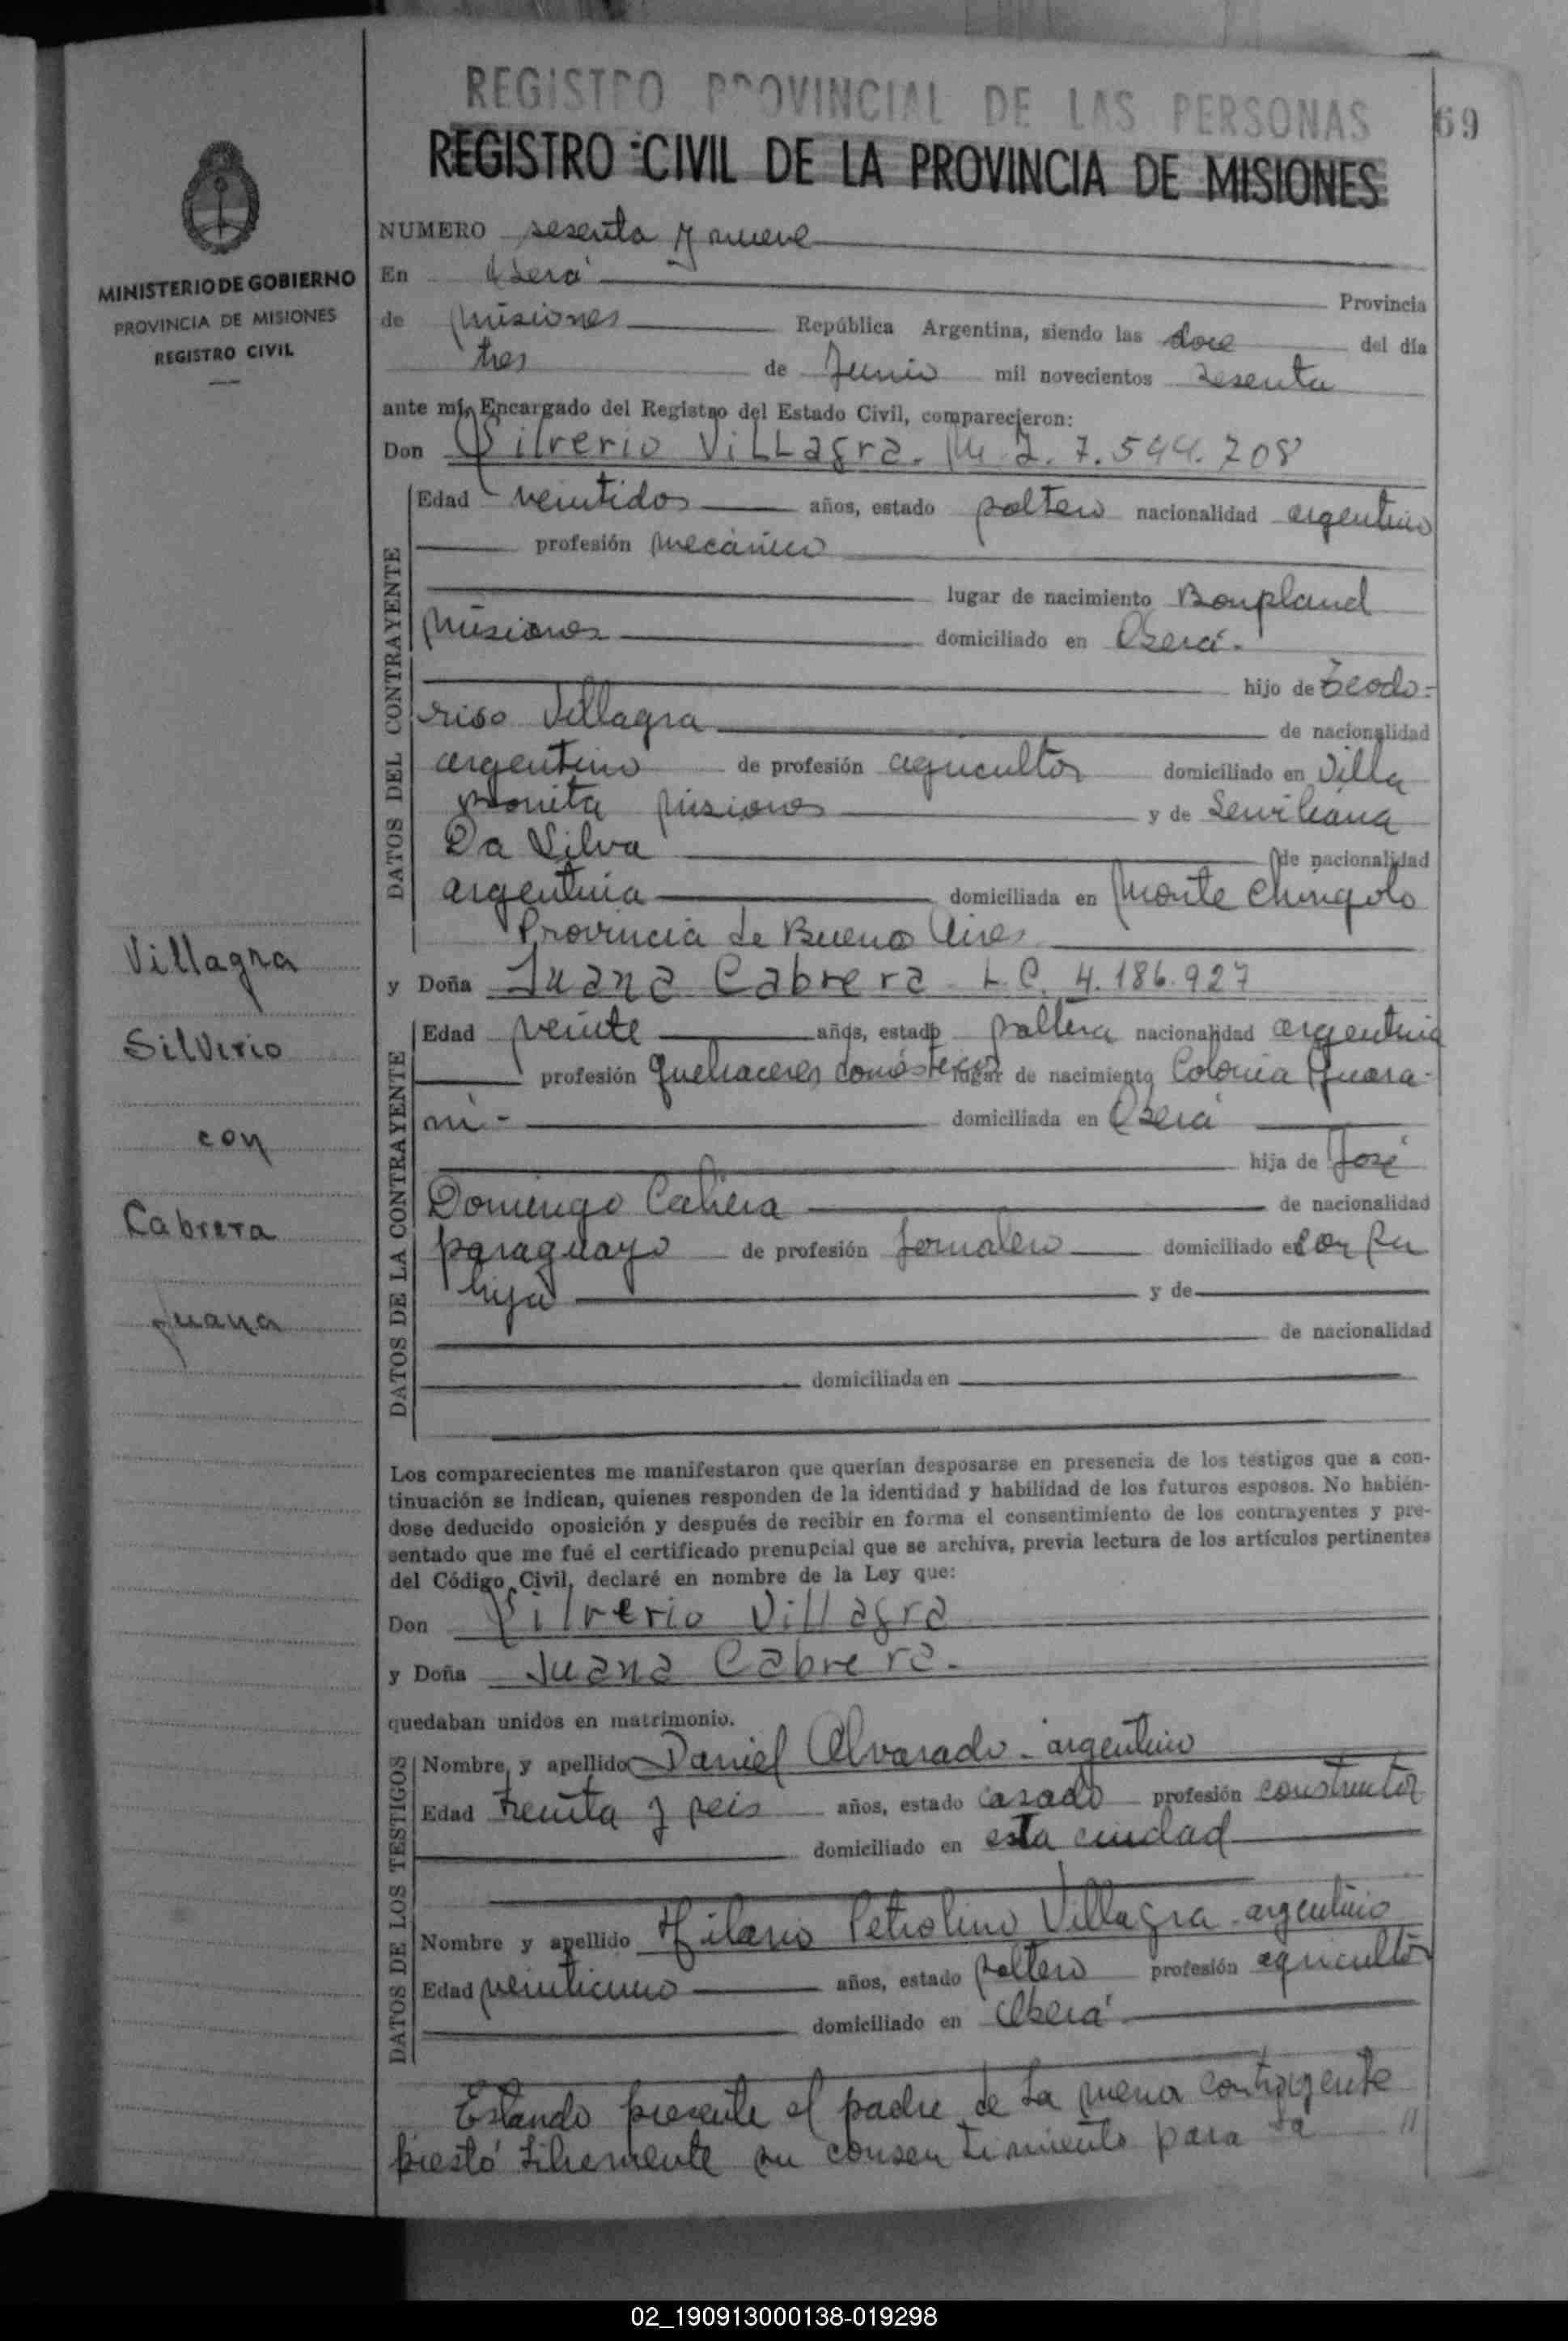 REGISTRO PROVINCIAL DE LAS PERSONAS
69
REGISTRO CIVIL DE LA PROVINCIA DE MISIONES
MINISTERIO DE GOBIERNO
PROVINCIA DE MISIONES
REGISTRO CIVIL
Villagra
Silverio
con
Cabrera
Juana
NUMERO sesenta y nueve
En Oberá Provincia
de Misiones República Argentina, siendo las doce del día
tres de Junio mil novecientos sesenta
ante mí, Encargado del Registro del Estado Civil, comparecieron:
Don Silverio Villagra. M. I. 7.544.708
DATOS DEL CONTRAYENTE
Edad veintidos años, estado soltero nacionalidad argentino
profesión mecánico
lugar de nacimiento Bonpland
Misiones domiciliado en Oberá.
hijo de Teodo-
riso Villagra de nacionalidad
argentino de profesión agricultor domiciliado en Villa
Bonita Misiones y de Serviliana
Da Silva de nacionalidad
argentina domiciliada en Monte Chingolo
Provincia de Buenos Aires
y Doña Juana Cabrera L.C. 4.186.927
DATOS DE LA CONTRAYENTE
Edad veinte años, estado soltera nacionalidad argentina
profesión quehaceres domésticos lugar de nacimiento Colonia Guara-
ni- domiciliada en Oberá
hija de José
Domingo Cabrera de nacionalidad
paraguayo de profesión jornalero domiciliado en con su
hija y de
de nacionalidad
domiciliada en
Los comparecientes me manifestaron que querían desposarse en presencia de los testigos que a con-
tinuación se indican, quienes responden de la identidad y habilidad de los futuros esposos. No habién-
dose deducido oposición y después de recibir en forma el consentimiento de los contrayentes y pre-
sentado que me fué el certificado prenupcial que se archiva, previa lectura de los artículos pertinentes
del Código Civil, declaré en nombre de la Ley que:
Don Silverio Villagra
y Doña Juana Cabrera.
quedaban unidos en matrimonio.
DATOS DE LOS TESTIGOS
Nombre y apellido Daniel Alvarado - argentino
Edad treinta y seis años, estado casado profesión constructor
domiciliado en esta ciudad
Nombre y apellido Hilario Petrolino Villagra - argentino
Edad veinticinco años, estado soltero profesión agricultor
domiciliado en Oberá
Estando presente el padre de la menor contrayente
prestó libremente su consentimiento para la "
02_190913000138-019298